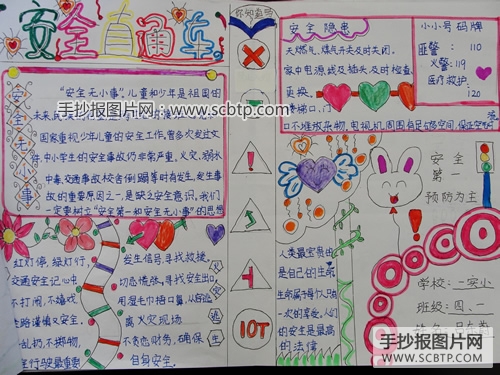 安全直通车
你知道吗
安全隐患
天燃气、煤气开关及时关闭。
家中电源、线及插头及时检查、
更换。
楼梯口、门
口不堆放杂物,电视机周围有足够空间,保证空气
小小号码牌
匪警:110
火警:119
医疗救护:
120
安全无小事
"安全无小事",儿童和少年是祖国的
未来,
国家重视少年儿童的安全工作,置多次发过文
件,中小学生的安全事故仍非常严重,火灾、溺水
中毒、交通事故、校舍倒蹋等时有发生,发生事
故的重要原因之一,是缺乏安全意识,我们
一定要树立"安全第一和安全无小事"的思想
手抄报图片网:www.scbtp.com
红灯停,绿灯行,
交通安全记心头
不打闹,不嬉戏,
走路谨慎又安全。
乱扔,不掷物,
安全行驶最重要
发生信号,寻找救援,
切忌慌张,寻找安全出口,
用湿毛巾捂口鼻,从侧边
离火灾现场
不贪恋财务,确保
自身安全。
逃
生
10T
人类最宝贵的
是自己的生命,
生命属于每个人只有
一次的享受,人们
的安全是最高
的法信
安全
第一
预防为主
学校:一实小
班级:四、一
手抄报图片网
WWW.SCBTP.COM